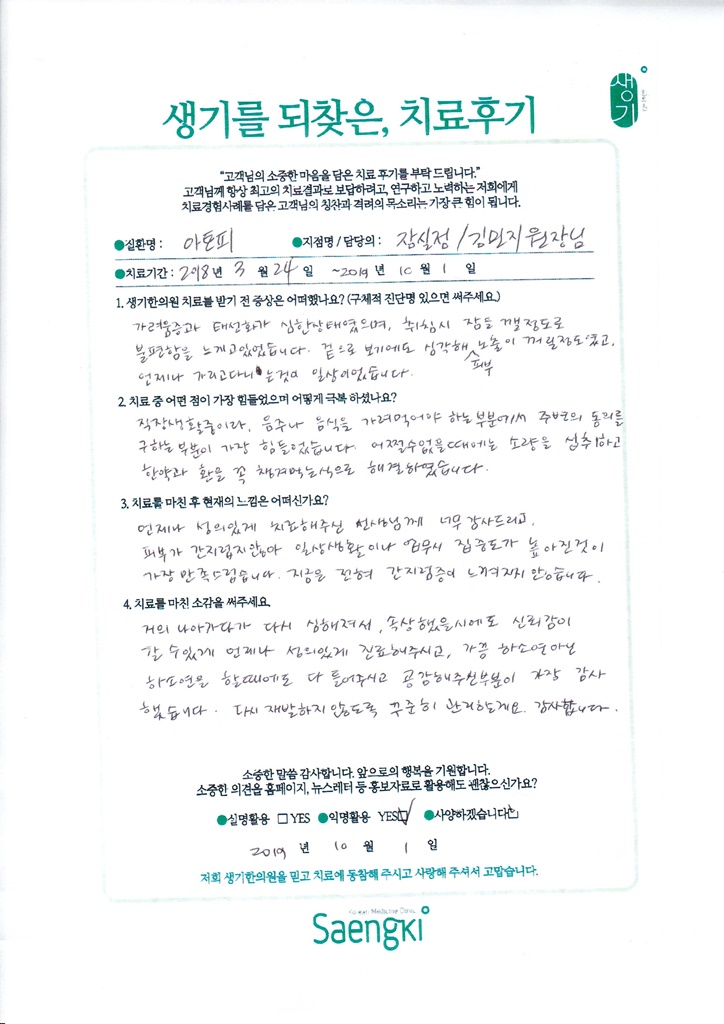 생기
생기를 되찾은, 치료후기
"고객님의 소중한 마음을 담은 치료 후기를 부탁 드립니다."
고객님께 항상 최고의 치료결과로 보답하려고, 연구하고 노력하는 저희에게
치료경험사례를 담은 고객님의 칭찬과 격려의 목소리는 가장 큰 힘이 됩니다.
●질환명 : 아토피 ●지점명 / 담당의 : 잠실점 / 김민지 원장님
●치료기간 : 2018년 3 월 24 일 ~2019 년 10 월 1 일
1. 생기한의원 치료를 받기 전 증상은 어떠했나요? (구체적 진단명 있으면 써주세요.)
가려움증과 태선화가 심한상태였으며, 취침시 잠을 깰정도로
불편함을 느끼고있었습니다. 겉으로 보기에도 심각해 피부 노출이 꺼릴정도였고,
언제나 가리고다니는것이 일상이었습니다.
2. 치료 중 어떤 점이 가장 힘들었으며 어떻게 극복 하셨나요?
직장생활중이라, 음주나 음식을 가려먹어야 하는부분에서 주변의 동의를
구하는부분이 가장 힘들었습니다. 어쩔수없을때에는 소량을 섭취하고
한약과 환을 꼭 챙겨먹는식으로 해결하였습니다.
3. 치료를 마친 후 현재의 느낌은 어떠신가요?
언제나 성의있게 치료해주신 선생님께 너무감사드리고,
피부가 간지럽지않아 일상생활이나 업무시 집중도가 높아진것이
가장 만족스럽습니다. 지금은 전혀 간지럼증이 느껴지지 않습니다.
4. 치료를 마친 소감을 써주세요.
거의 나아가다가 다시 심해져서, 속상했을시에도 신뢰감이
갈 수있게 언제나 성의있게 진료해주시고, 가끔 하소연아닌
하소연을 할때에도 다 들어주시고 공감해주신부분이 가장 감사
했습니다. 다시 재발하지 않도록 꾸준히 관리할게요. 감사합니다.
소중한 말씀 감사합니다. 앞으로의 행복을 기원합니다.
소중한 의견을 홈페이지, 뉴스레터 등 홍보자료로 활용해도 괜찮으신가요?
●실명활용 □YES ●익명활용 YES☑ ●사양하겠습니다□
2019 년 10 월 1 일
저희 생기한의원을 믿고 치료에 동참해 주시고 사랑해 주셔서 고맙습니다.
Korean Medicine Clinic
Saengki